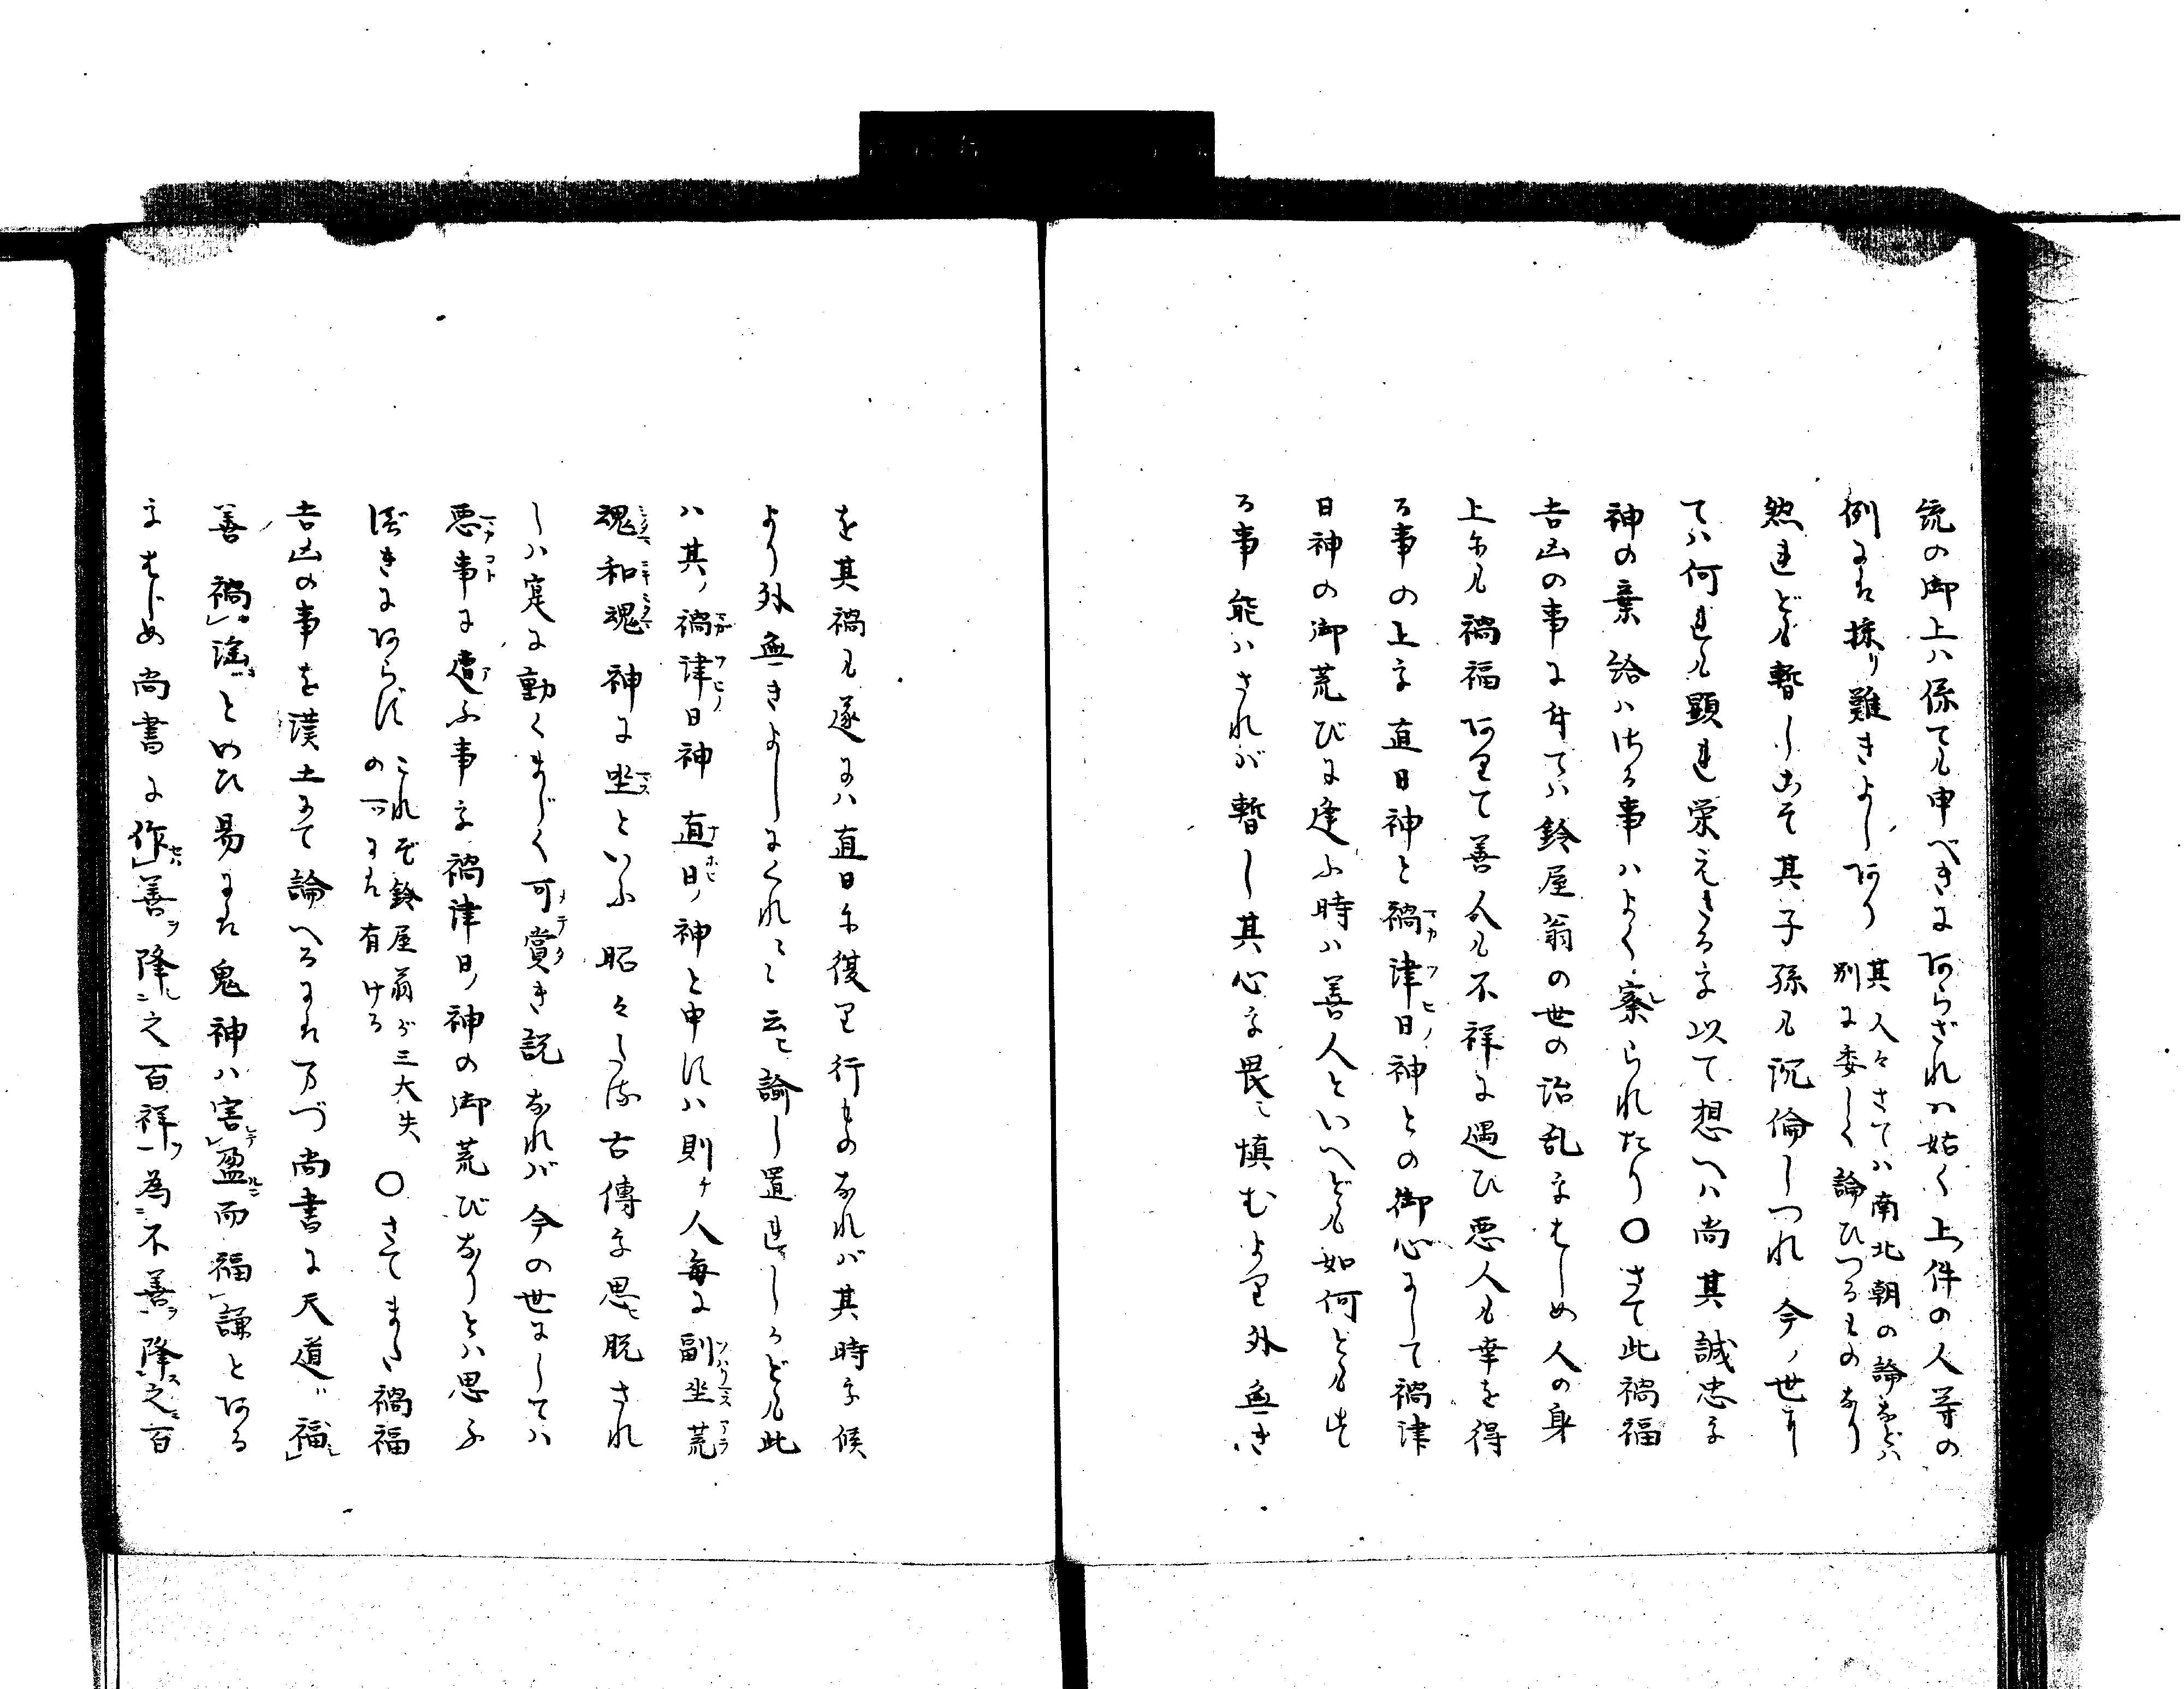 統の御上ハ係ても申べきにあらざれハ姑く上件の人等の
例には採り難きよしあり 其人々さてハ南北朝の論などハ
別に委しく論ひつるものなり
然れども暫しこそ其子孫も沉倫しつれ今ノ世に
てハ何れも顕れ栄えたるを以て想へハ尚其誠忠を
神の棄給ハざる事ハよく察られたり○さて此禍福
吉凶の事に付てハ鈴屋翁の世の治乱をはしめ人の身
上にも禍福ありて善人も不祥に遇ひ悪人も幸を得
る事の上を直日神と禍津日神との御心にして禍津
日神の御荒びに逢ふ時ハ善人といへども如何とも
る事能ハざれバ暫し其心を畏ミ慎むより外無き
を其禍も遂にハ直日に復り行ものなれバ其時を候
より外無きよしにくれ〲も云ヒ諭し置れしかども此
ハ其ノ禍津日神直日ノ神と申すハ則チ人毎に副坐荒
魂和魂神に坐といふ昭々しき古傳を思ヒ脱され
しハ寔に動くまじく可賞き説なれバ今の世にしてハ
悪事に遭ふ事を禍津日ノ神の御荒びなりとハ思ふ
べきにあらず これぞ鈴屋翁が三大失
の一には有ける ○さてまた禍福
吉凶の事を漢土にて論へるには万づ尚書に天道ハ福
善禍淫とのひ易には鬼神ハ害盈而福謙とある
をはじめ尚書に作善降之百祥為不善降之百